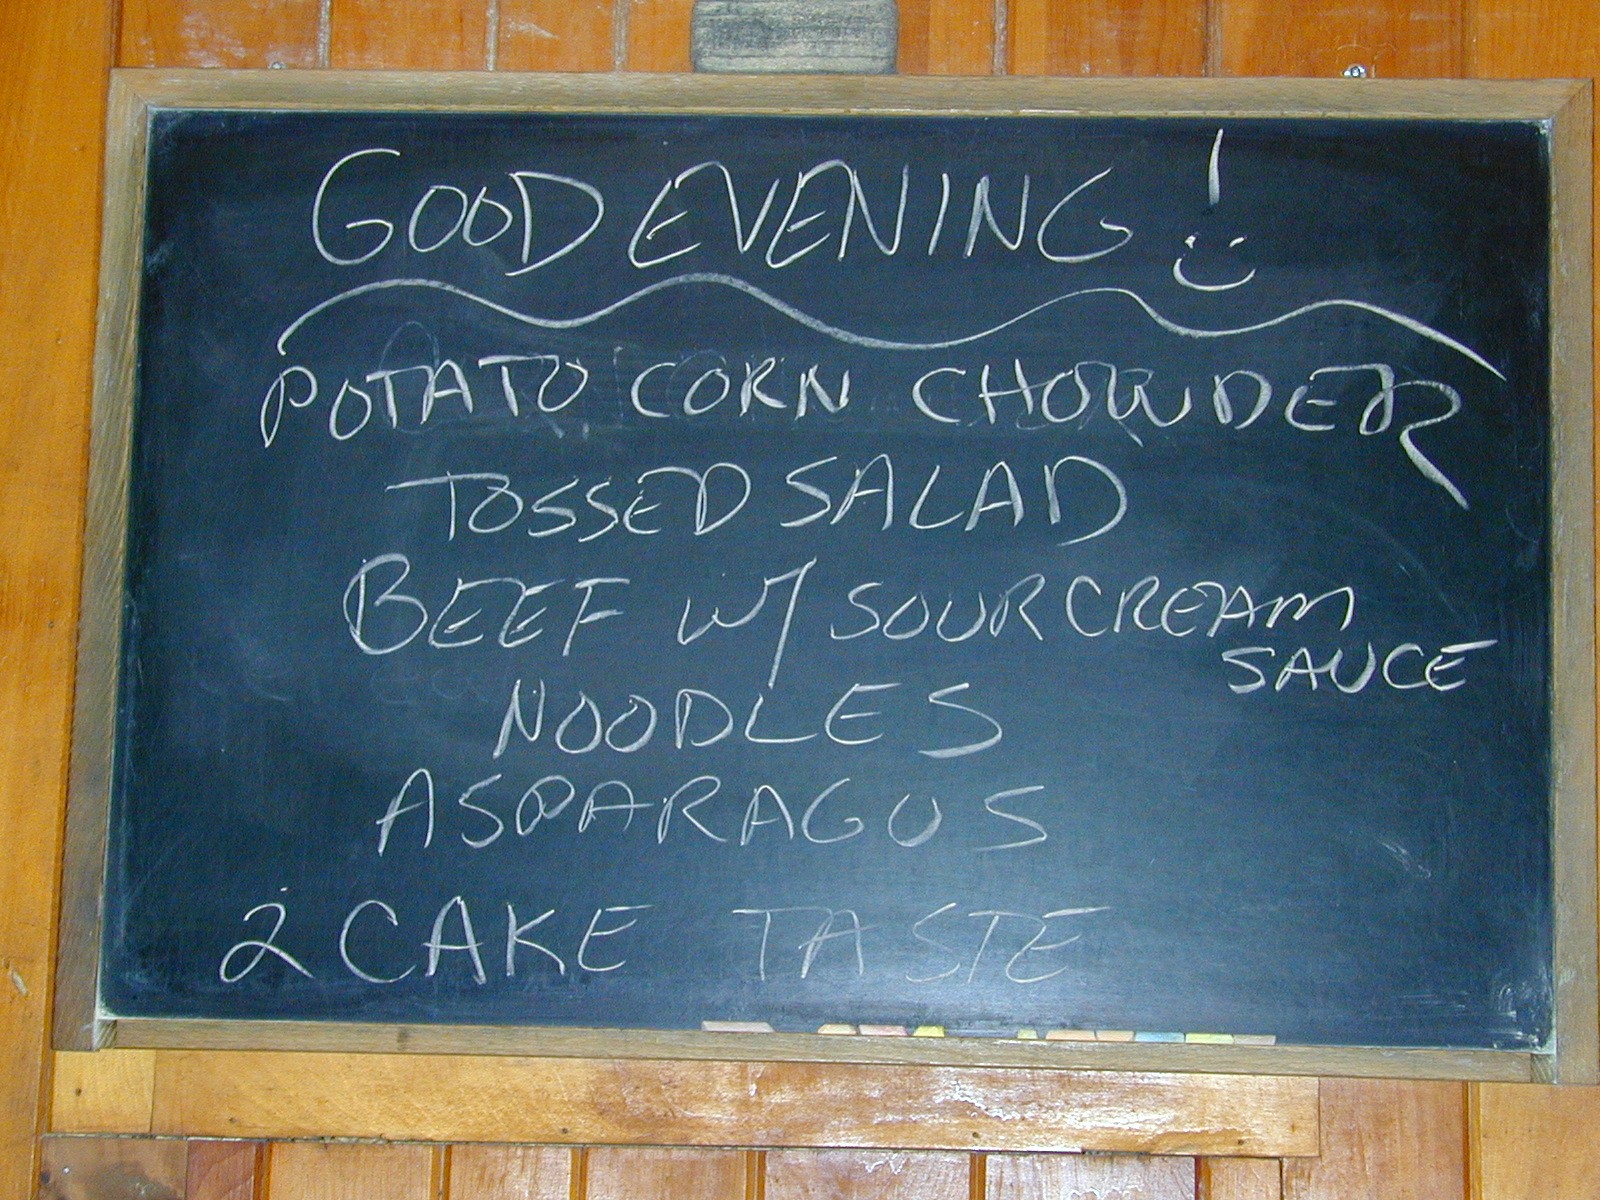 GOOD EVENING!
POTATO CORN CHOWDER
TOSSED SALAD
BEEF W/ SOUR CREAM
SAUCE
NOODLES
ASPARAGUS
2 CAKE TASTE